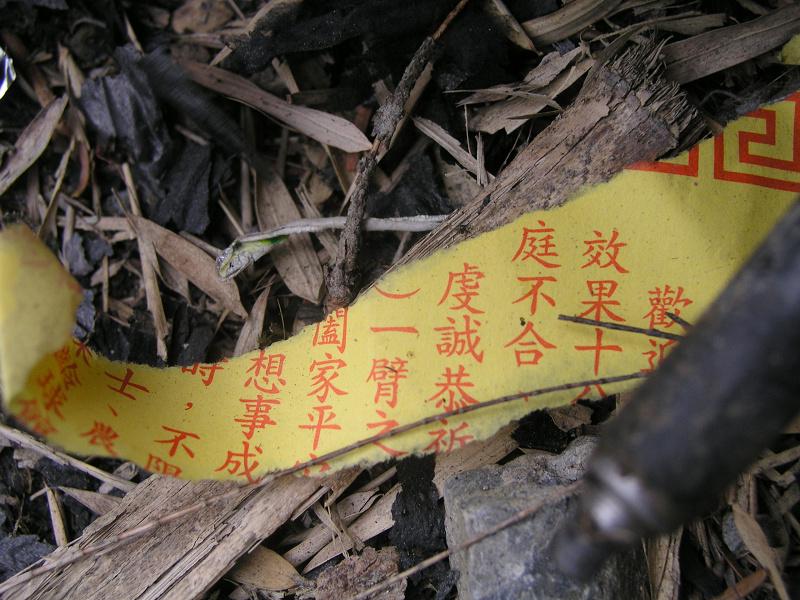 歡迎
效果十分
庭不合
虔誠恭祈
一臂之
闔家平安
想事成
時,不限
士、農